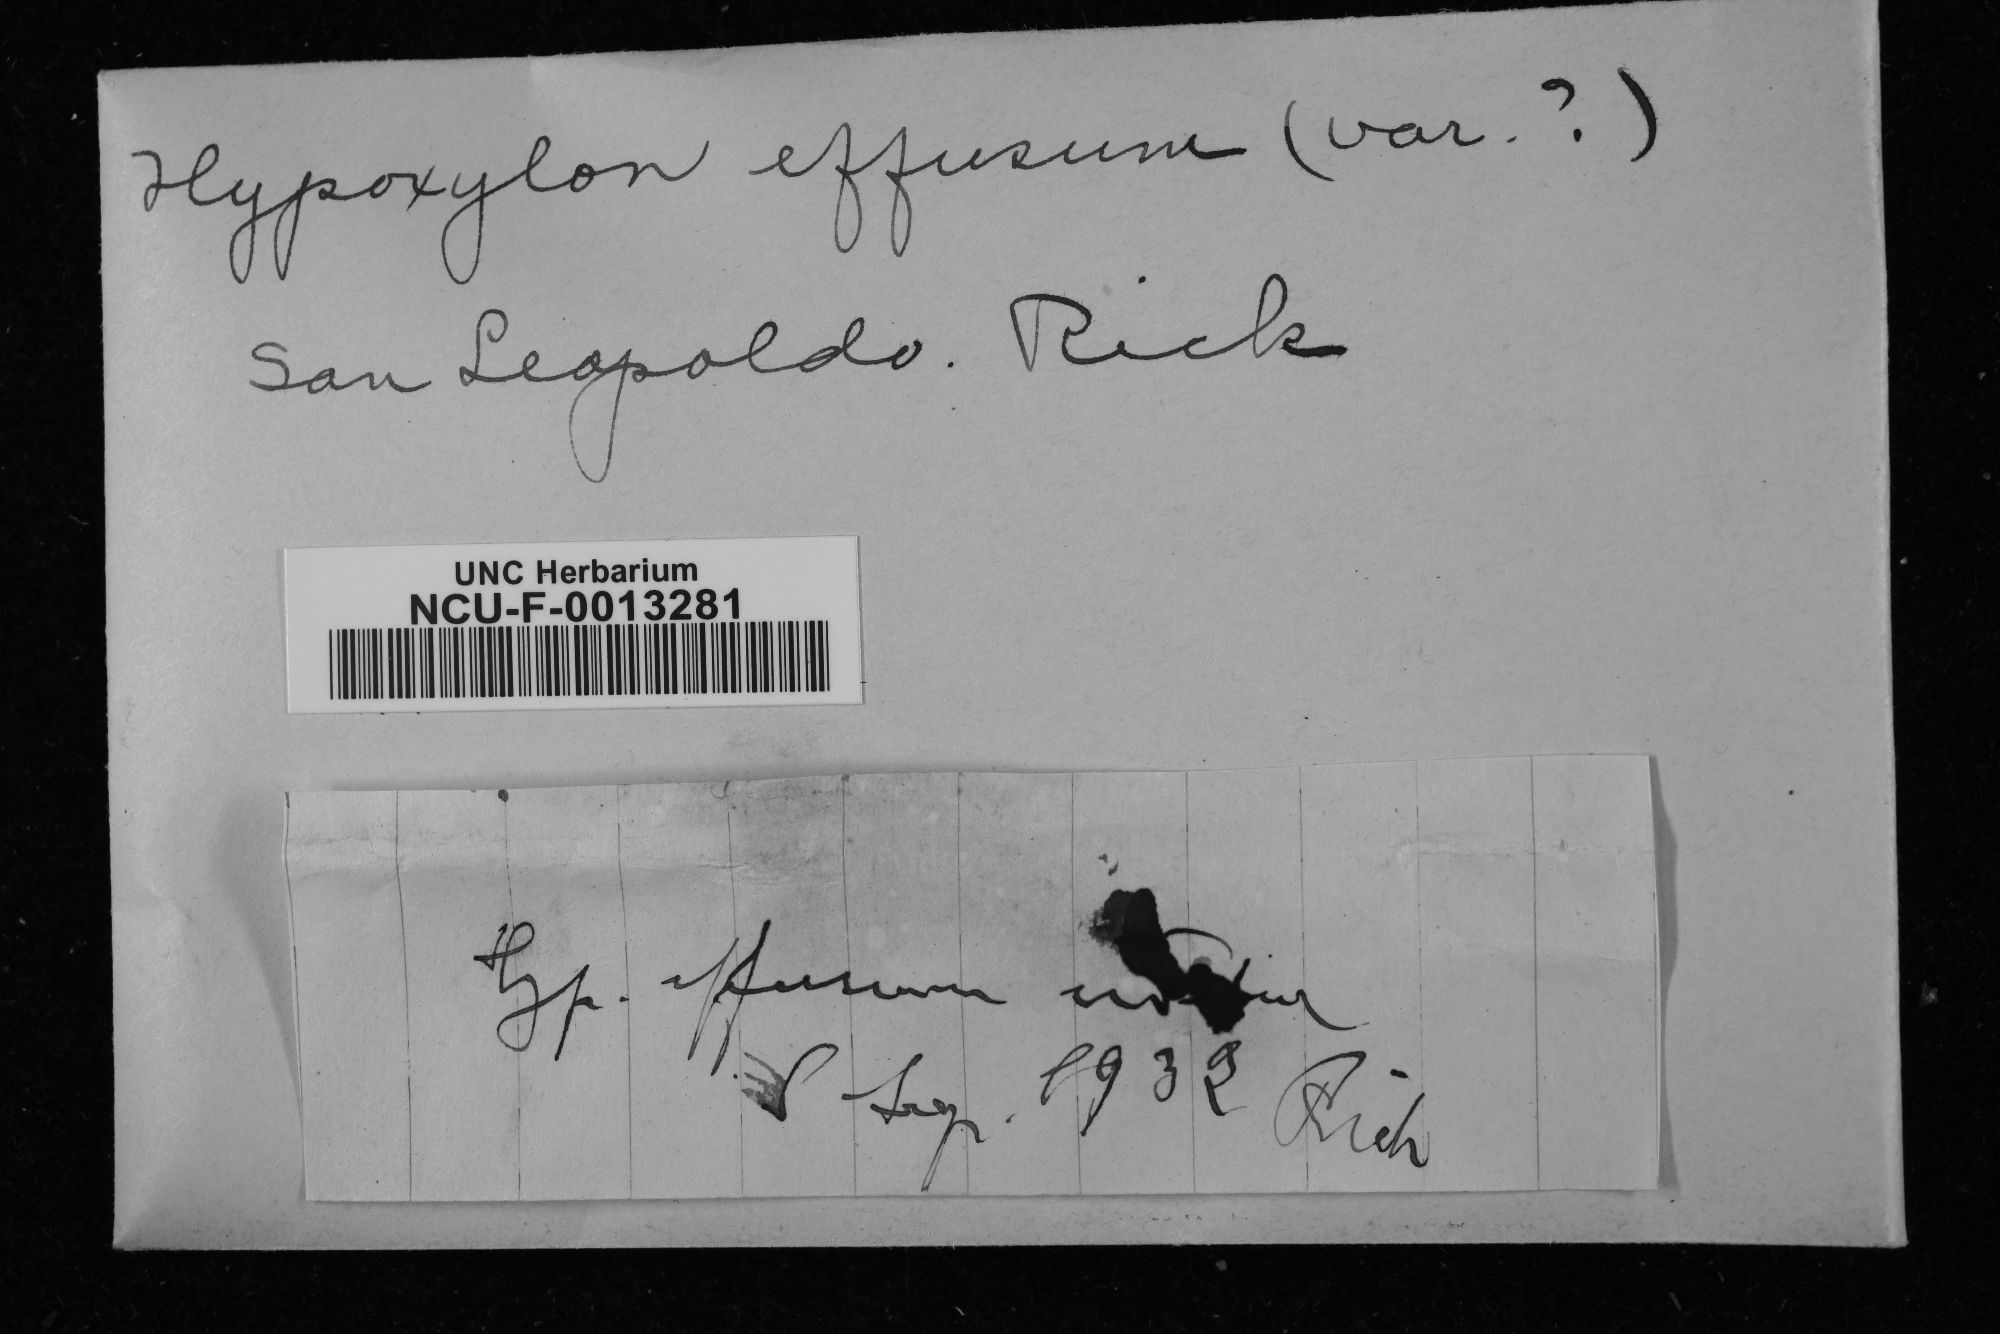 Hypoxylon effusum (var. ?)
San Leopoldo. Rick
UNC Herbarium
NCU-F-0013281
Hyp. effusum
S Leop. 1932 Rick